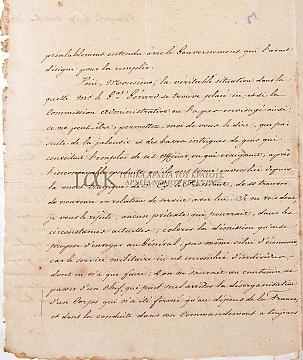 préalablement entendu avec le Gouvernement, qui l'avait
désigné pour la remplir.
Voici, Monsieur, la véritable situation dans la
quelle Mr le Gal Gérard se trouve placé ici, et de la
Commission administrative ou l'a
ce ne peut être, permettez-moi de vous le dire, que par
suite de la jalousie et des basses intrigues de gens qui
convoitent l'emploi de cet officier, ou qui craignent, après
ΓΕΝΙΚΑ ΑΡΧΕΙΑ ΤΟΥ ΚΡΑΤΟΥΣ
la mort de se trouver
de nouveau en relation de service avec lui. Je ne vois donc,
je vous le répète, aucun prétexte qui pourrait, dans les
circonstances actuelles, colorer la démission qu'on se
propose d'envoyer au Général, pas même celui d'économie
car le service militaire est encombré d'individus
dont on n'a que faire; l'on ne saurait au contraire se
passer d'un Chef, qui peut seul arrêter la désorganisation
d'un Corps qui n'a été formé qu'aux dépens de la France
et dont la conduite dans son Commandement a toujours